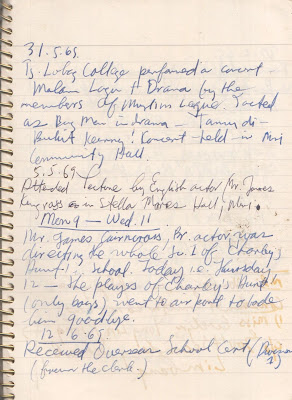 31.5.69
Tg. Lobang College performed a concert -
Malam Lagu & Drama by the
members of Muslim League. I acted
as Big Man in drama — Tanus di-
Bukit Kenny! Concert held in Miri
Community Hall.
5.5.69
Attended lecture by English actor Mr. James
Cairncross in Stella Mares Hall, Miri.
Mon 9 — Wed. 11
Mr. James Cairncross, Br. actor was
directing the whole Sc. 1 of Charley's
Aunt in School. Today i.e. Thursday
12 — the players of Charley's Aunt
(only boys) went to air port to bade
him goodbye.
12.6.69
Received Overseas School Cert (Division
(from the clerk.) 1)